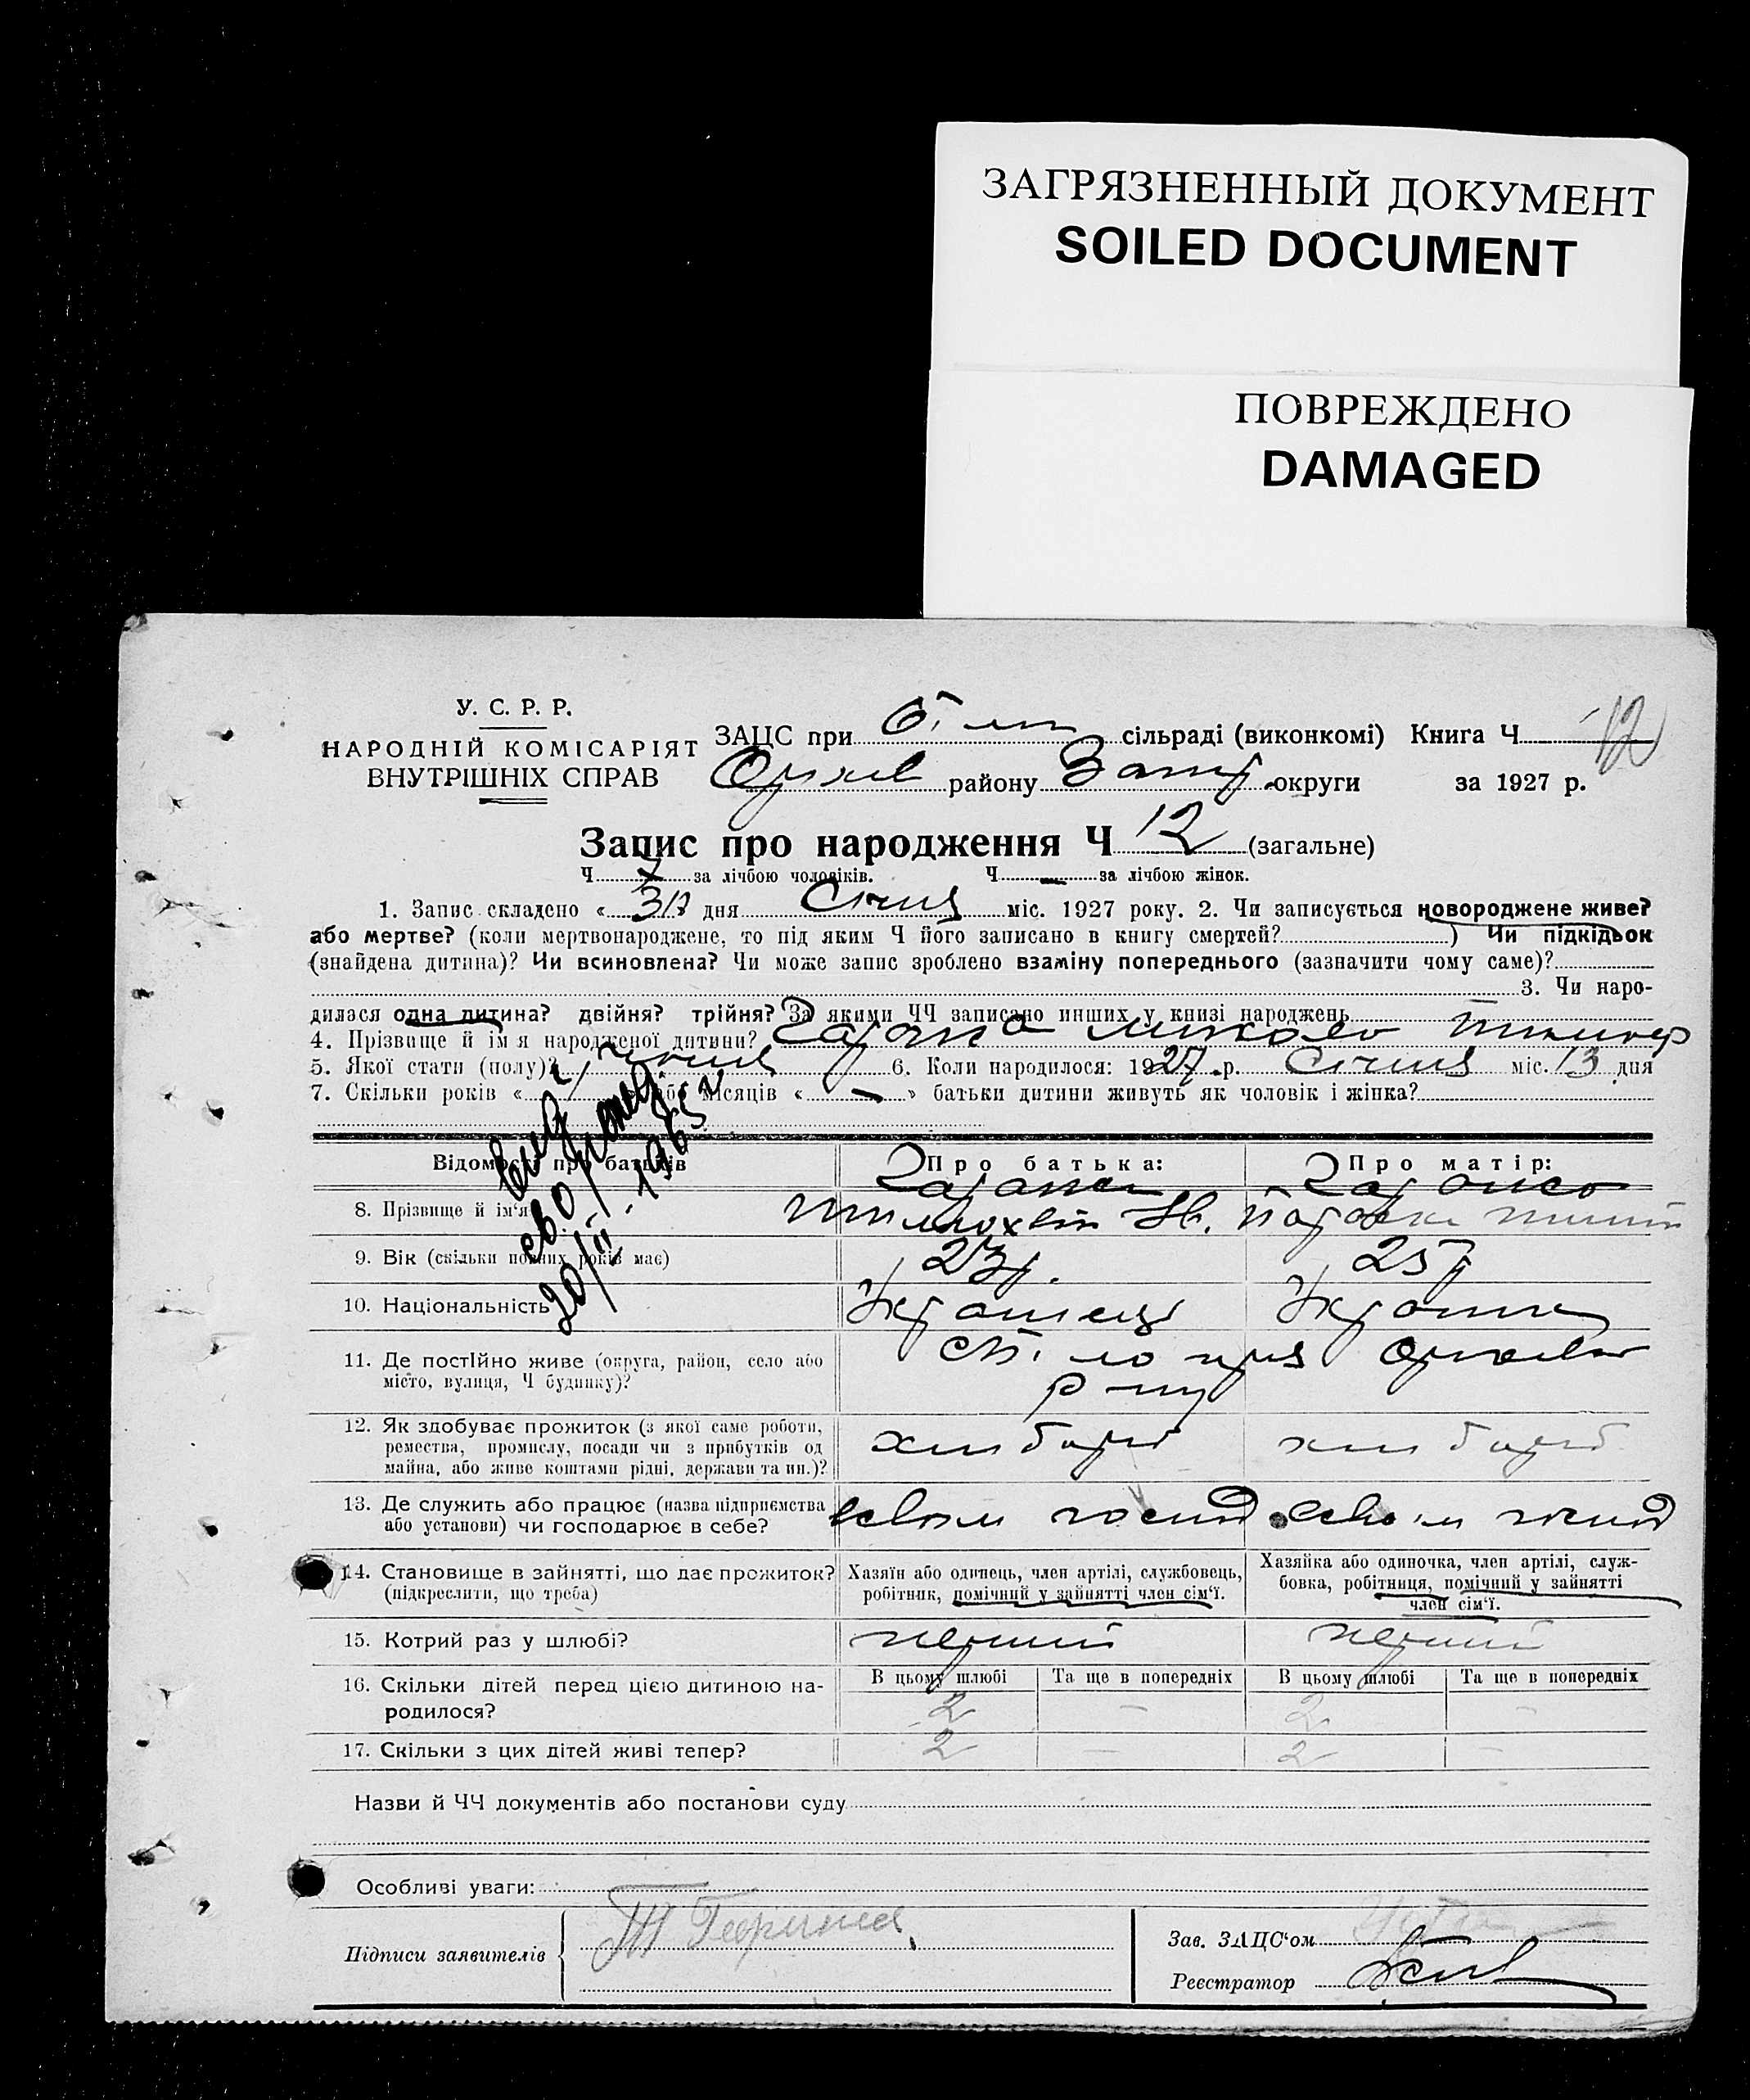 ЗАГРЯЗНЕННЫЙ ДОКУМЕНТ
SOILED DOCUMENT
ПОВРЕЖДЕНО
DAMAGED
У. С. Р. Р.
НАРОДНІЙ КОМІСАРІЯТ
ВНУТРІШНІХ СПРАВ
ЗАЦС при сільраді (виконкомі) Книга Ч 12
Оріхів району Запор округи за 1927 р.
Запис про народження Ч 12 (загальне)
Ч 7 за лічбою чоловіків. Ч — за лічбою жінок.
1. Запис складено « 31 » дня Січня міс. 1927 року. 2. Чи записується новороджене живе?
або мертве? (коли мертвонароджене, то під яким Ч його записано в книгу смертей? ) Чи підкідьок
(знайдена дитина)? Чи всиновлена? Чи може запис зроблено взаміну попереднього (зазначити чому саме)?
3. Чи наро-
дилася одна дитина? двійня? трійня? За якими ЧЧ записано инших у книзі народжень
4. Прізвище й ім'я народженої дитини?
5. Якої стати (полу)? 6. Коли народилося: 1927 р. Січня міс. 13 дня
7. Скільки років « » або місяців « — » батьки дитини живуть як чоловік і жінка?
20/II-1965
Відомості про батьків Про батька: Про матір:
8. Прізвище й ім'я
9. Вік (скільки повних років має) 23 р. 25 р
10. Національність Українець Українка
11. Де постійно живе (округа, район, село або
місто, вулиця, Ч будинку)?
12. Як здобуває прожиток (з якої саме роботи,
ремества, промислу, посади чи з прибутків од
майна, або живе коштами рідні, держави та ин.)?
хлібороб хлібороб
13. Де служить або працює (назва підприємства
або установи) чи господарює в себе?
своїм господ своїм господ
14. Становище в зайнятті, що дає прожиток?
(підкреслити, що треба)
Хазяїн або одинець, член артілі, службовець,
робітник, помічний у зайнятті член сім'ї.
Хазяйка або одиночка, член артілі, служ-
бовка, робітниця, помічний у зайнятті
член сім'ї.
15. Котрий раз у шлюбі? перший перший
16. Скільки дітей перед цією дитиною на-
родилося?
В цьому шлюбі Та ще в попередніх В цьому шлюбі Та ще в попередніх
2 — 2 —
17. Скільки з цих дітей живі тепер? 2 — 2 —
Назви й ЧЧ документів або постанови суду
Особливі уваги:
Підписи заявителів
Зав. ЗАЦС'ом
Реєстратор